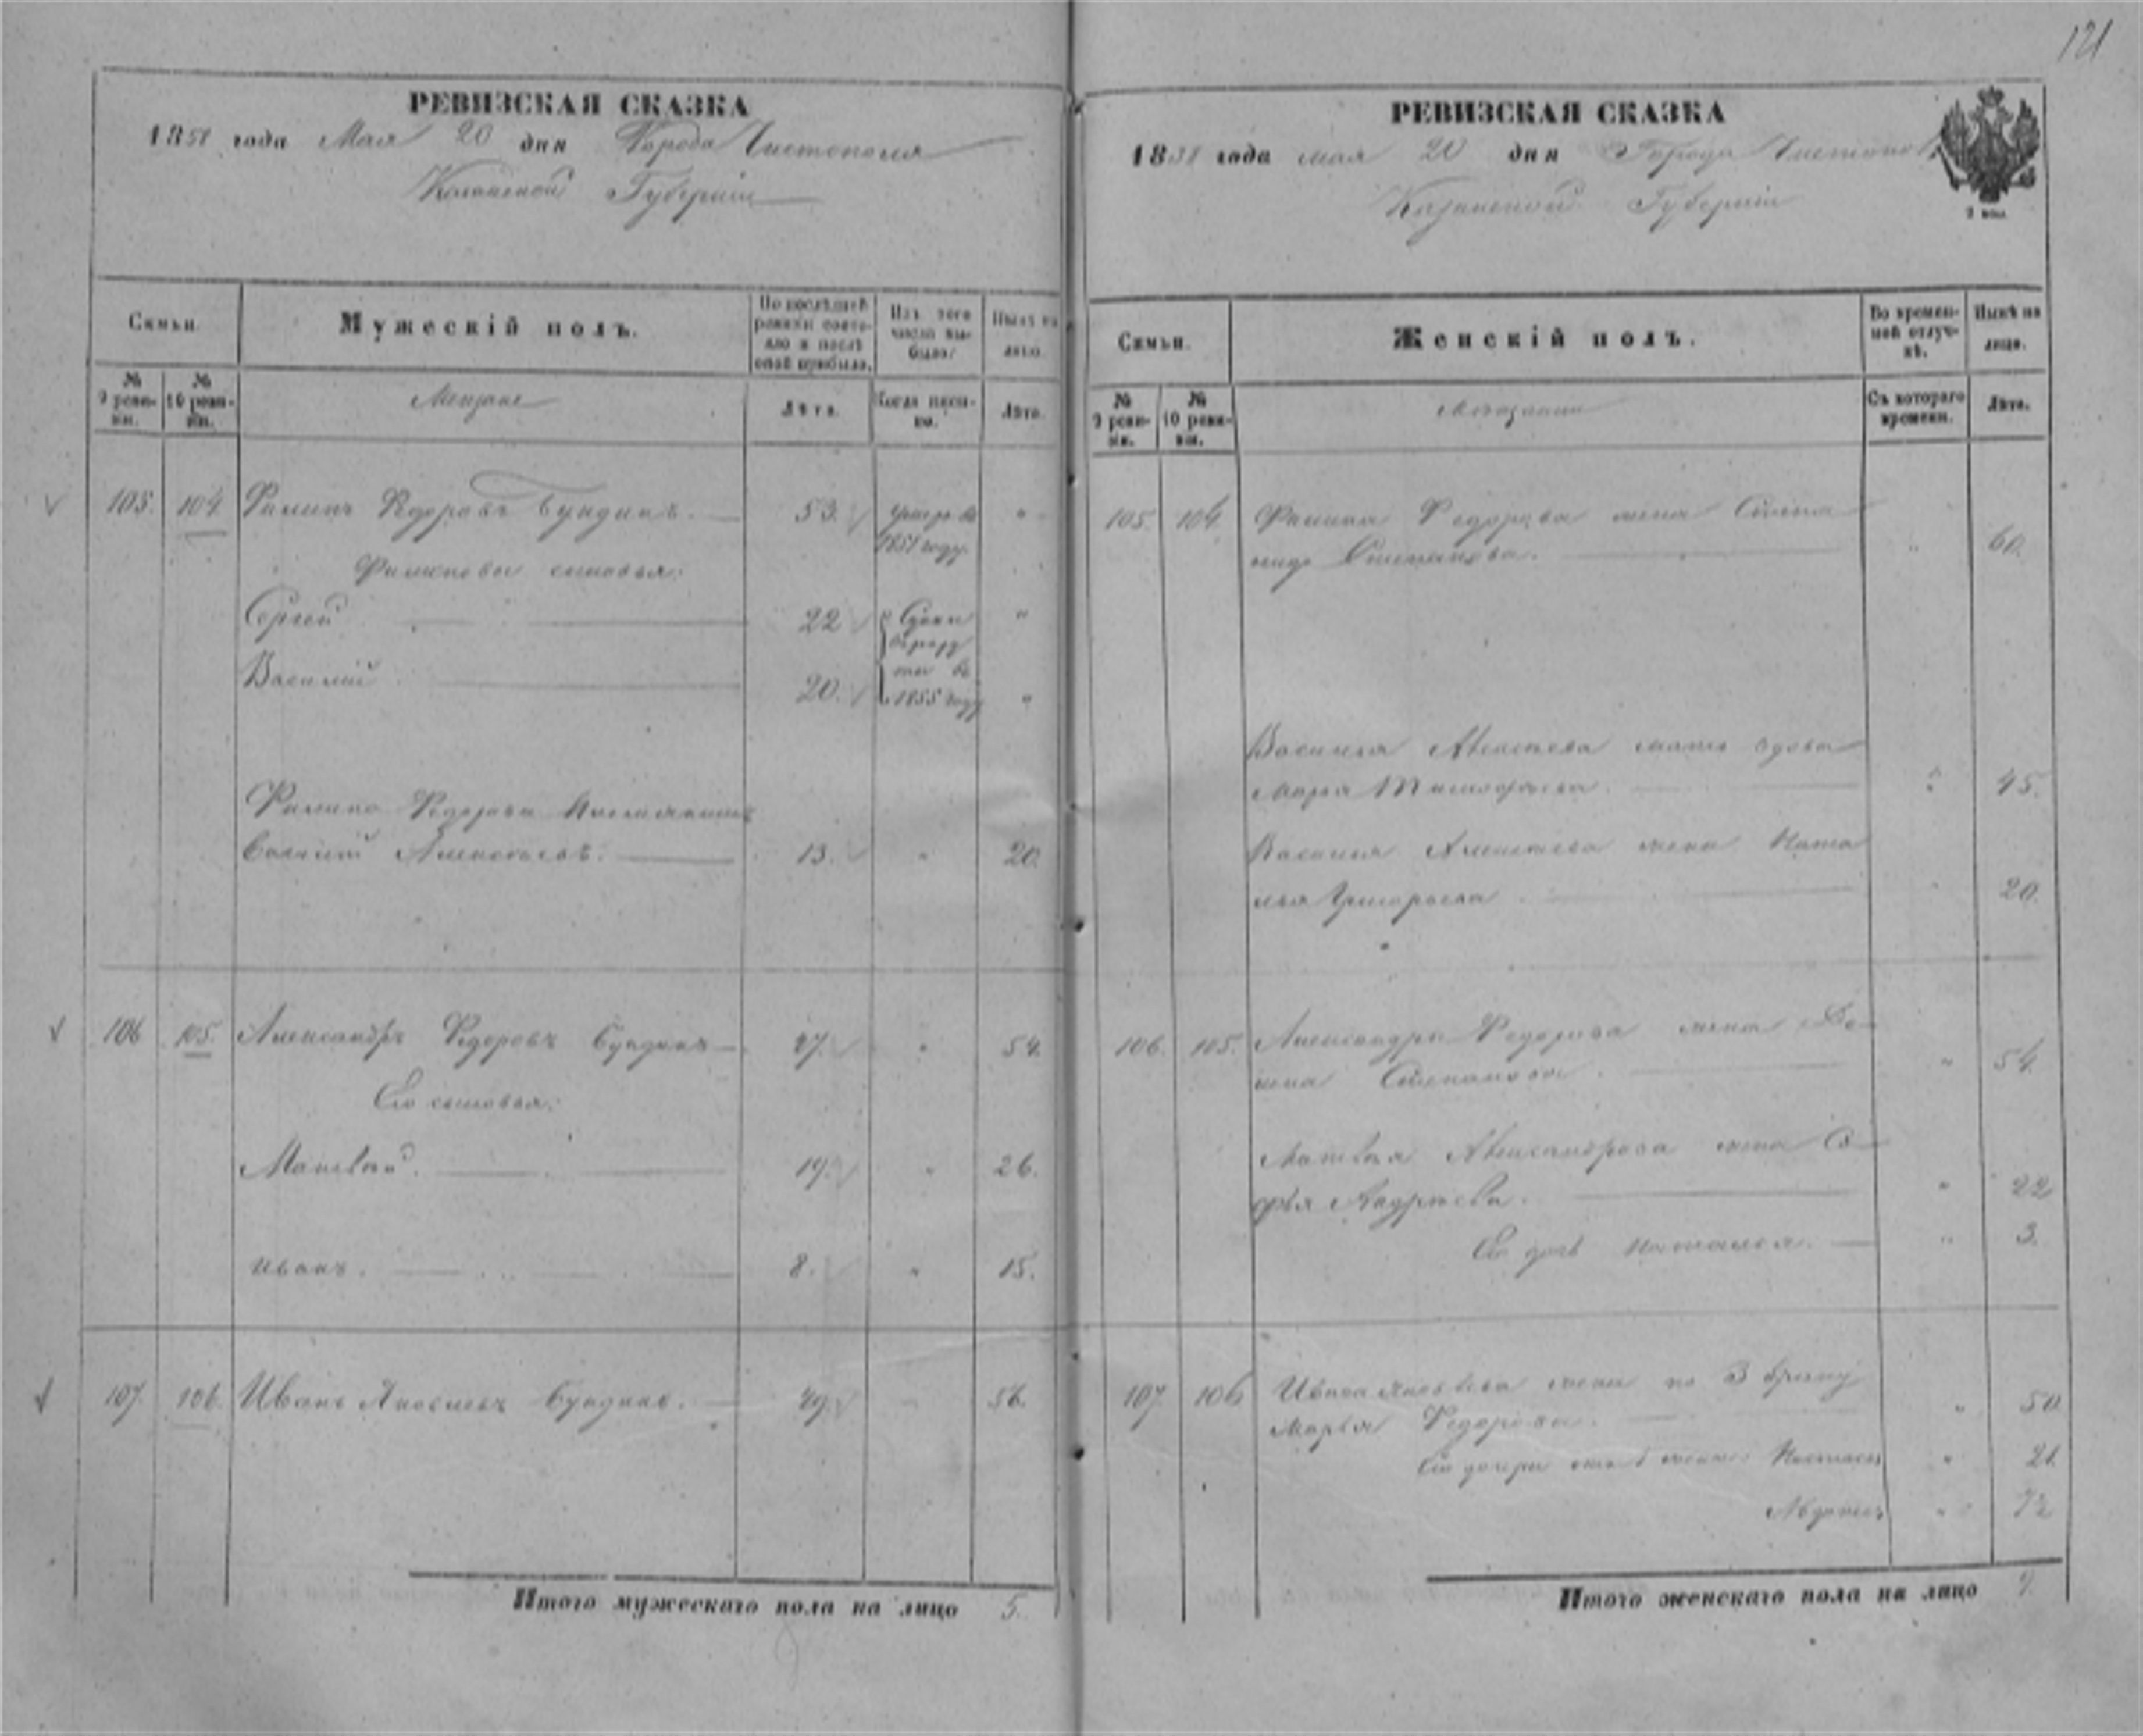 121
РЕВИЗСКАЯ СКАЗКА
1858 года Мая 20 дня Города Чистополя
Казанской Губернии
Семьи.
Мужескій полъ.
По послѣдней ревизіи состояло и послѣ оной прибыло.
Изъ того числа выбыло.
Нынѣ на лицо.
№ 9 ревизіи.
№ 10 ревизіи.
Мещане
Лѣта.
Когда именно.
Лѣта.
105. 104. Филипъ Федоровъ Бундинъ. 53. умеръ въ 1851 году. "
Филиповы сыновья:
Сергей 22 "
Василий 20. "
Сданы въ рекруты въ 1855 году
Филипа Федорова
Василий Алексѣевъ. 13. " 20.
106 105. Александръ Федоровъ Бундинъ 47. " 54.
Его сыновья:
Матвѣй. 19. " 26.
Иванъ. 8. " 15.
107. 106. Иванъ Яковлевъ Бундинъ. 49. " 56.
Итого мужескаго пола на лицо 5.
РЕВИЗСКАЯ СКАЗКА
1858 года мая 20 дня Города Чистополя
Казанской Губернии
2 коп.
Семьи.
Женскій полъ.
Во временной отлучкѣ.
Нынѣ на лицо.
№ 9 ревизіи.
№ 10 ревизіи.
Съ котораго времени.
Лѣта.
105. 104. Филипа Федорова жена
Степанова. " 60.
Василья Алексѣева мать вдова
Марья " 45.
Василья Алексѣева жена Ната
лья Григорьева " 20.
106. 105. Александра Федорова жена
Степанова. " 54.
Матвѣя Александрова жена Со
фья Андреева. " 22
Его дочь Наталья. " 3.
107. 106 Ивана Яковлева жена по 3 браку
Марья Федорова. " 50
Его дочери отъ " 21.
Авдотья "
Итого женскаго пола на лицо